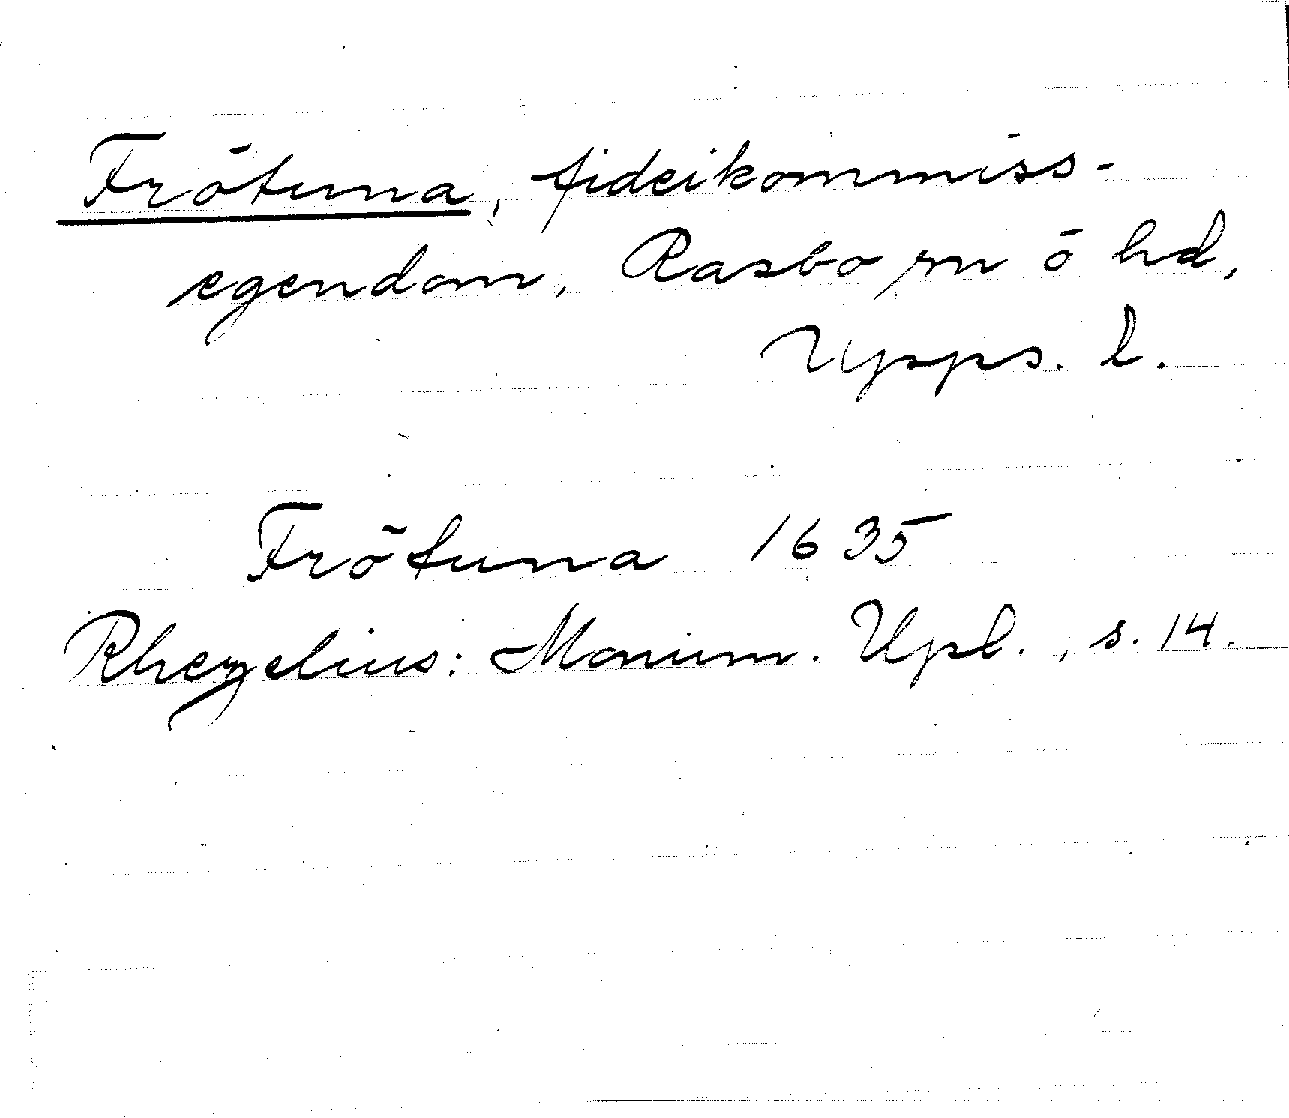 Frötuna, fideikommiss-
egendom, Rasbo sn o hd,
Upps. l.
Frötuna 1635
Rhezelius: Monum. Upl., s. 14.